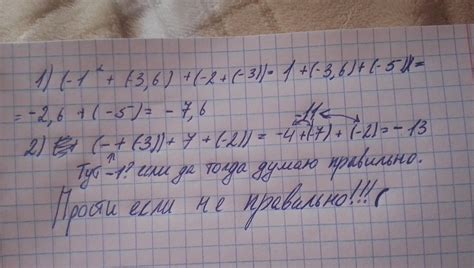 1) (-1² + (-3,6) + (-2 + (-3)) = 1 + (-3,6) + (-5)) =
= -2,6 + (-5) = -7,6
-11
2) (- + (-3)) + 7 + (-2)) = -4 + (-7) + (-2) = -13
Тут -1? если да тогда думаю правильно.
Прости если не правильно!!!(